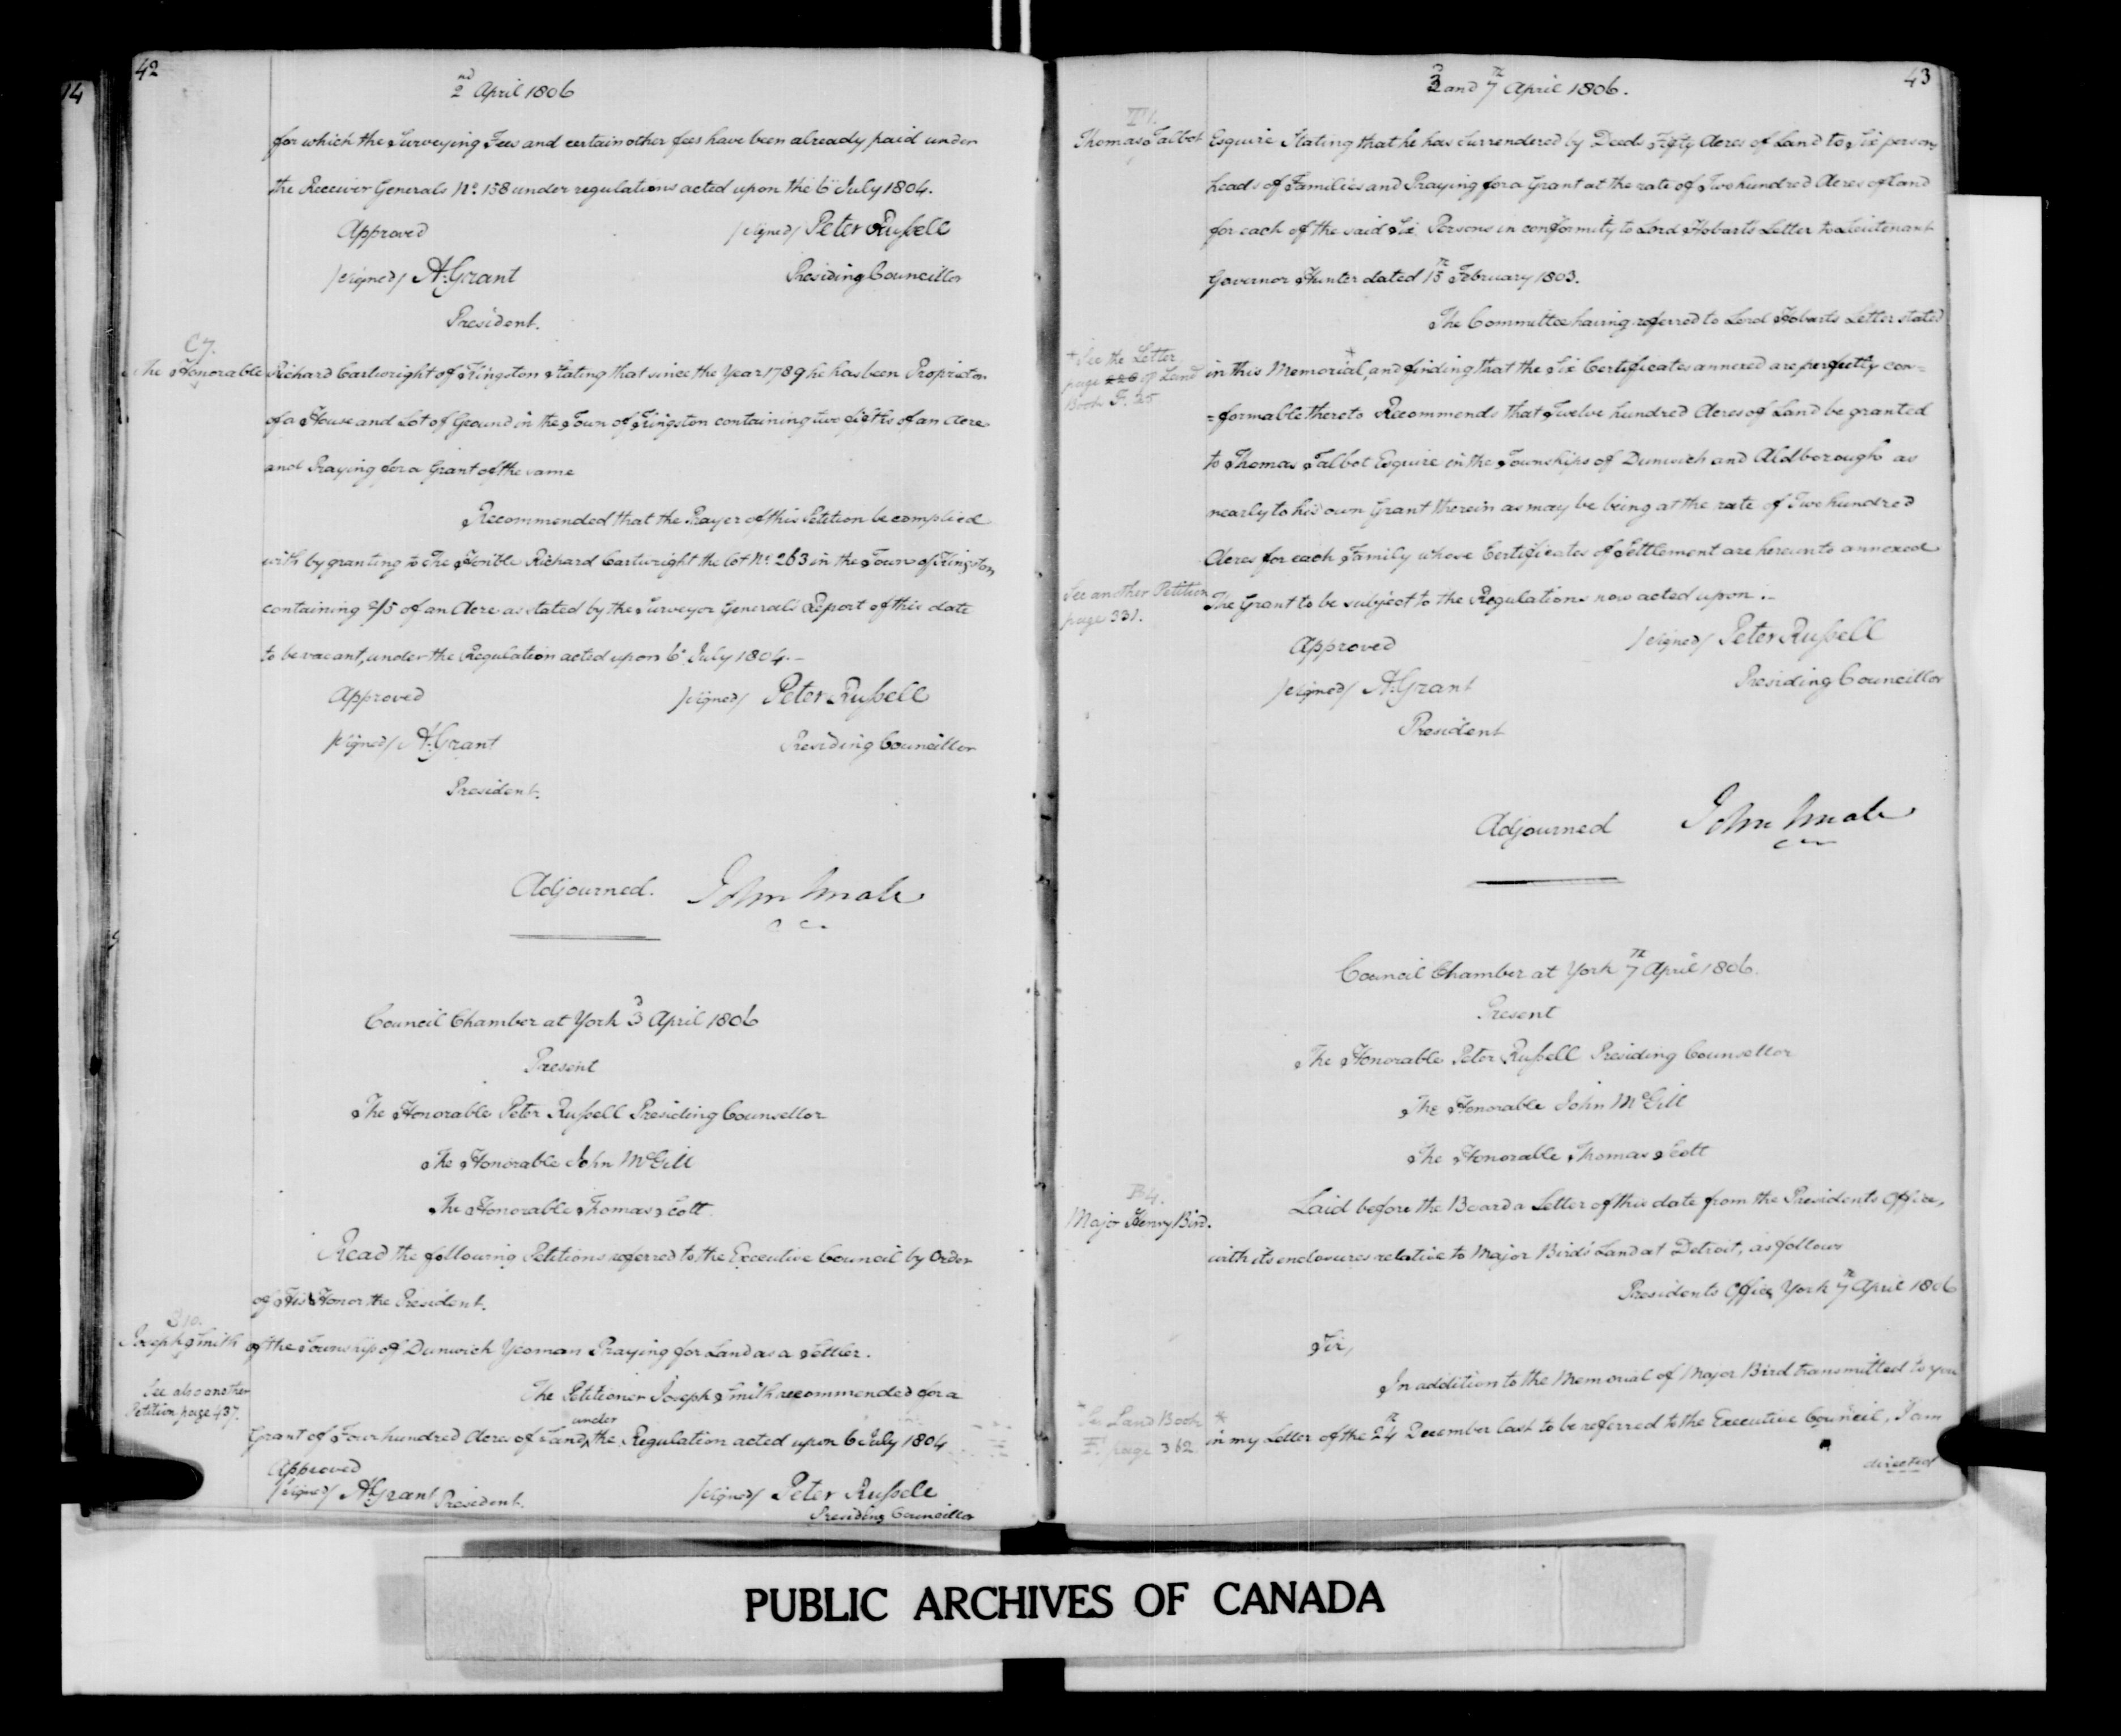 42
2nd April 1806
for which the Surveying Fees and certain other fees have been already paid under
the Receiver Generals No. 158 under regulations acted upon the 6th July 1804.
Approved
/signed/ Peter Russell
/signed/ A. Grant
Presiding Councillor
President.
C 7.
The Honorable Richard Cartwright of Kingston Stating that since the Year 1789 he has been Proprietor
of a House and Lot of Ground in the Town of Kingston containing two fifths of an Acre
and Praying for a Grant of the same
Recommended that the Prayer of this Petition be complied
with by granting to The Honble Richard Cartwright the lot No. 263 in the Town of Kingston
containing 2/5 of an Acre as stated by the Surveyor General's Report of this date
to be vacant, under the Regulation acted upon 6th July 1804.-
Approved
/signed/ Peter Russell
/signed/ A. Grant
Presiding Councillor
President.
Adjourned. John Small
C C.
Council Chamber at York 3d April 1806
Present
The Honorable Peter Russell Presiding Counsellor
The Honorable John McGill
The Honorable Thomas Scott.
Read the following Petitions referred to the Executive Council by Order
of His Honor the President.
S 10.
Joseph Smith of the Township of Dunwich Yeoman Praying for Land as a Settler.
See also another
Petition page 437.
The Petitioner Joseph Smith recommended for a
Grant of Four hundred Acres of Land, under the Regulation acted upon 6 July 1804
Approved
/signed/ A. Grant President.
/signed/ Peter Russell
Presiding Councillor
43
3d and 7th April 1806.
Thomas Talbot Esquire Stating that he has surrendered by Deeds Fifty Acres of Land to Six persons
heads of Families and Praying for a Grant at the rate of Two hundred Acres of Land
for each of the said Six Persons in conformity to Lord Hobarts Letter to Lieutenant
Governor Hunter dated 15th February 1803.
The Committee having referred to Lord Hobarts Letter stated
+ See the Letter
page 228 of Land
Book F. 25
in this Memorial,* and finding that the Six Certificates annexed are perfectly con=
=formable thereto Recommends that Twelve hundred Acres of Land be granted
to Thomas Talbot Esquire in the Townships of Dunwich and Aldborough as
nearly to his own Grant therein as may be being at the rate of Two hundred
Acres for each Family whose Certificates of Settlement are hereunto annexed
See another Petition
page 331.
The Grant to be subject to the Regulations now acted upon.-
Approved
/signed/ Peter Russell
/signed/ A. Grant
Presiding Councillor
President
Adjourned John Small
Council Chamber at York 7th April 1806.
Present
The Honorable Peter Russell Presiding Counsellor
The Honorable John McGill
The Honorable Thomas Scott
B 4.
Major Henry Bird.
Laid before the Board a Letter of this date from the Presidents Office,
with its enclosures relative to Major Bird's Land at Detroit, as follows
Presidents Office York 7th April 1806
Sir,
In addition to the Memorial of Major Bird transmitted to you
* See Land Book
F. page 362
* in my Letter of the 24th December last to be referred to the Executive Council, I am
directed
PUBLIC ARCHIVES OF CANADA